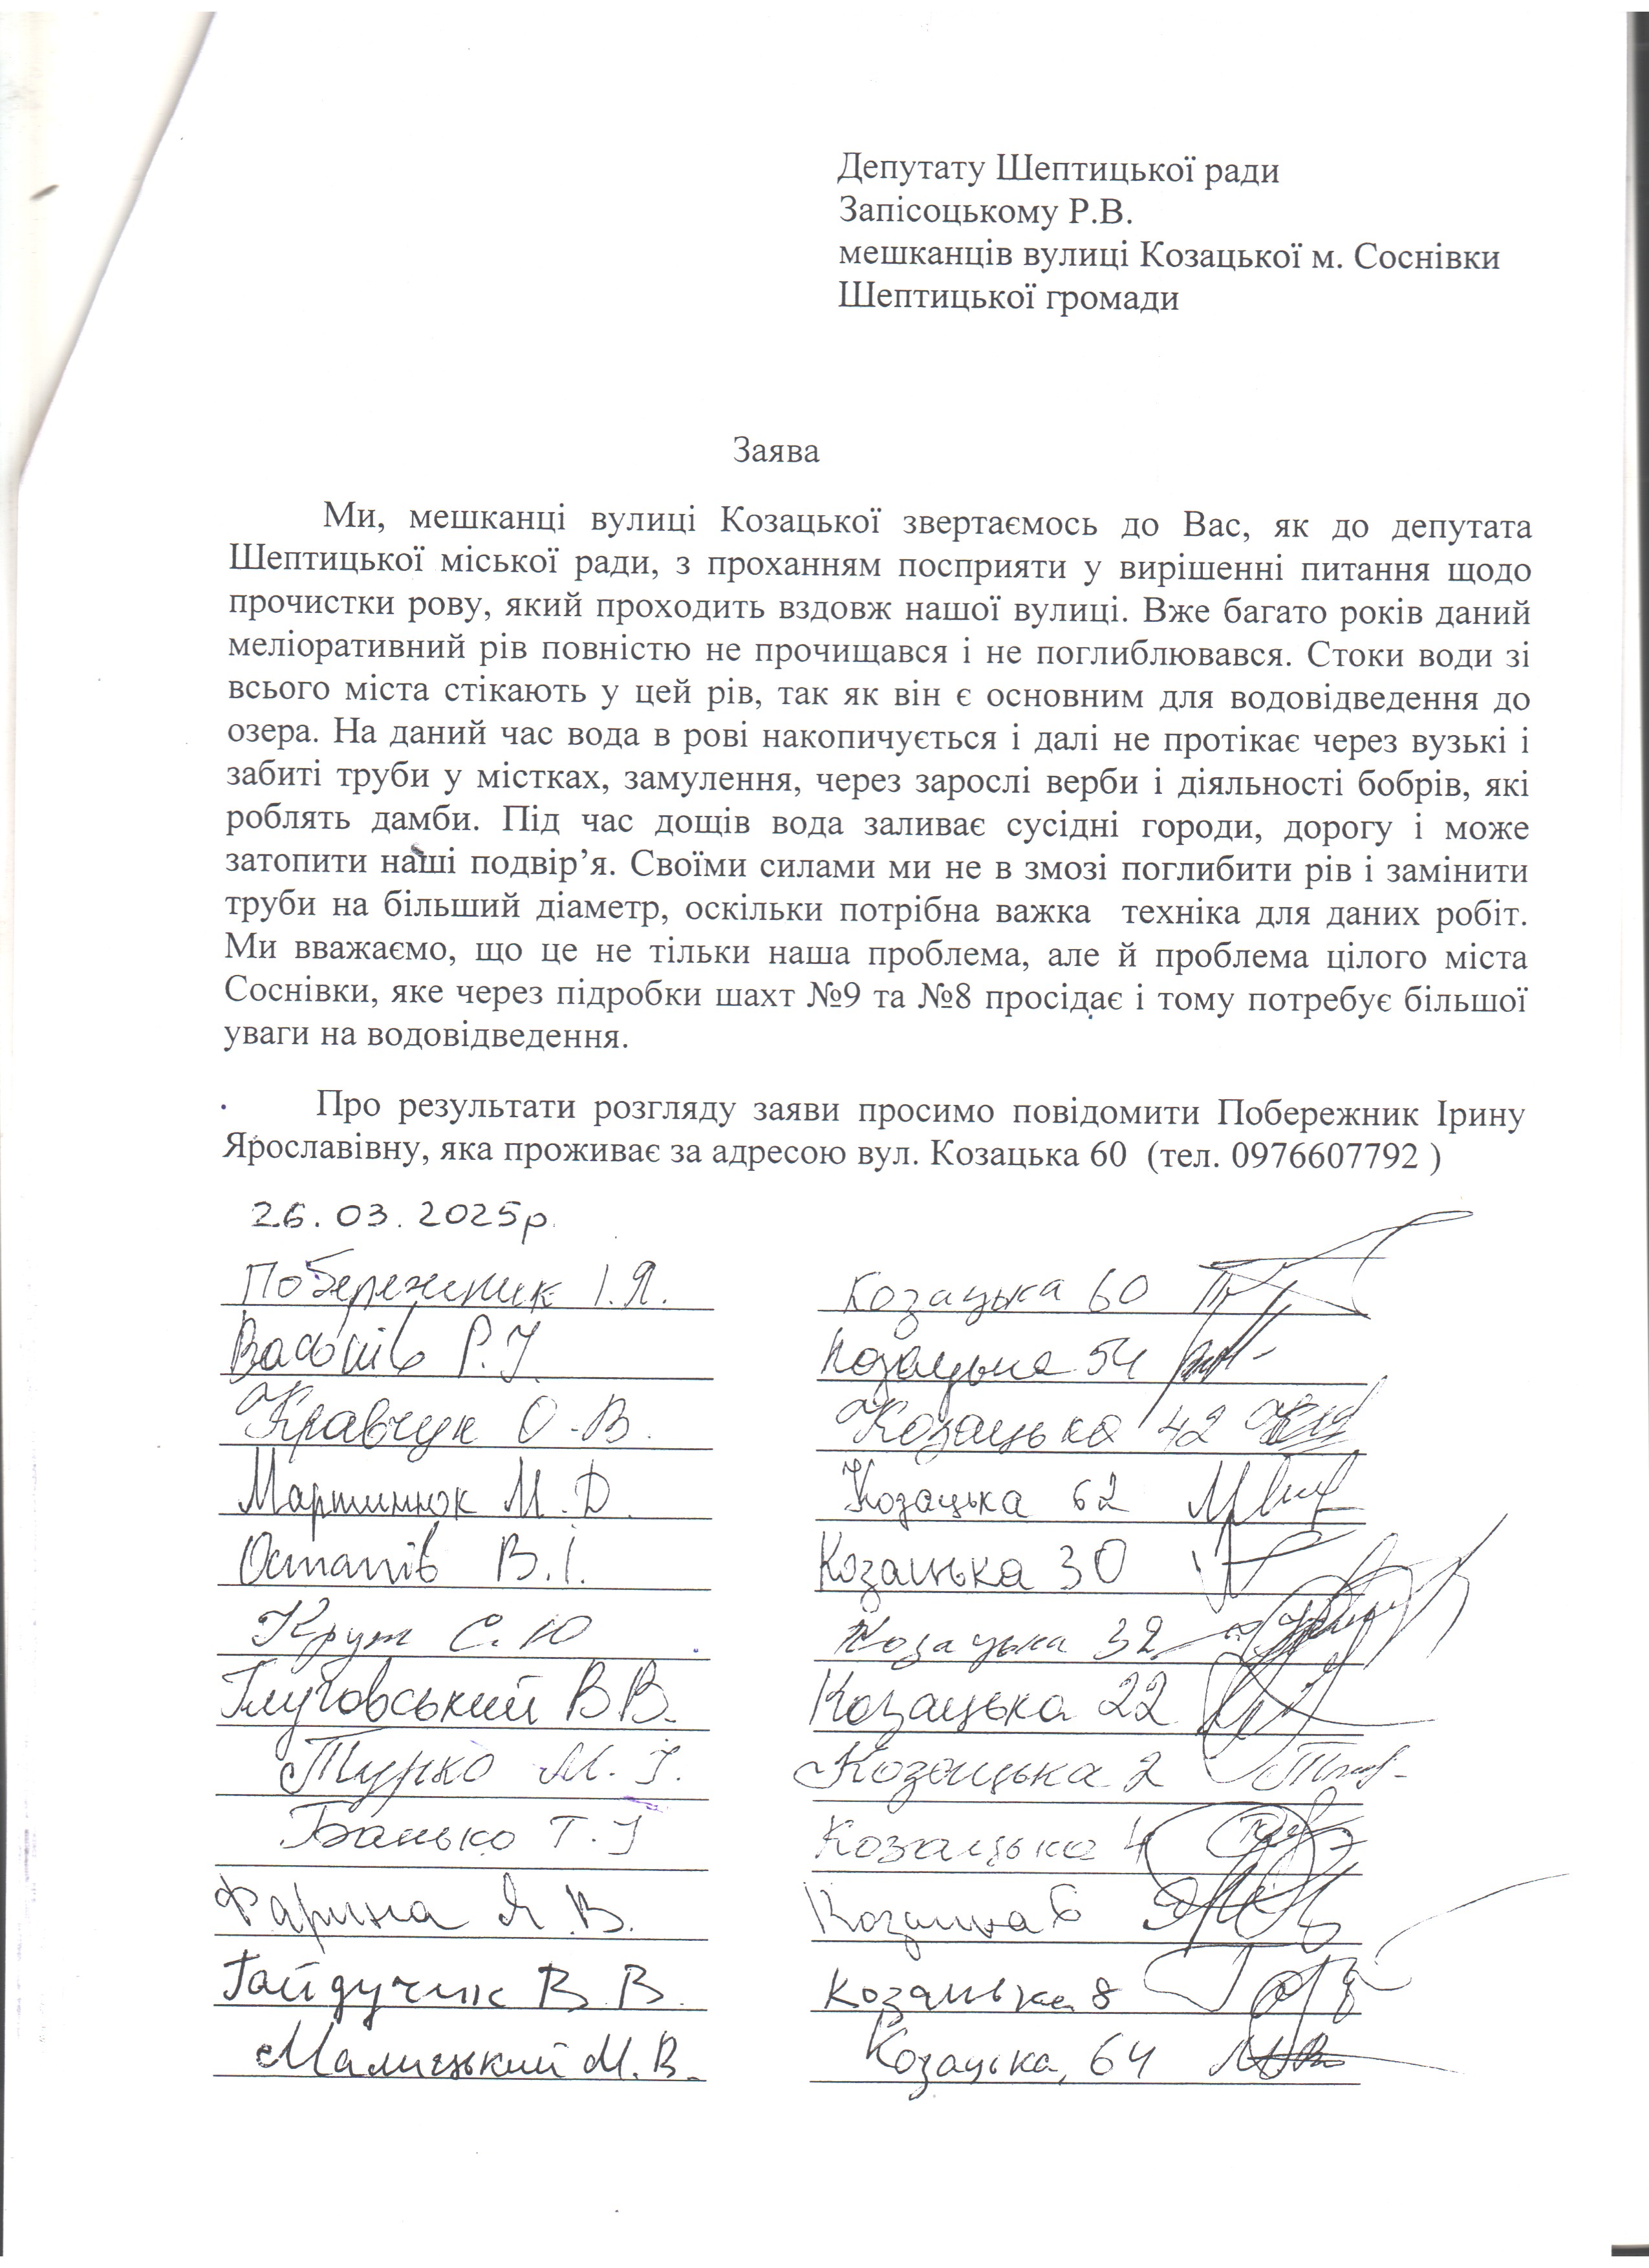 Депутату Шептицької ради
Запісоцькому Р.В.
мешканців вулиці Козацької м. Соснівки
Шептицької громади
Заява
Ми, мешканці вулиці Козацької звертаємось до Вас, як до депутата
Шептицької міської ради, з проханням посприяти у вирішенні питання щодо
прочистки рову, який проходить вздовж нашої вулиці. Вже багато років даний
меліоративний рів повністю не прочищався і не поглиблювався. Стоки води зі
всього міста стікають у цей рів, так як він є основним для водовідведення до
озера. На даний час вода в рові накопичується і далі не протікає через вузькі і
забиті труби у містках, замулення, через зарослі верби і діяльності бобрів, які
роблять дамби. Під час дощів вода заливає сусідні городи, дорогу і може
затопити наші подвір’я. Своїми силами ми не в змозі поглибити рів і замінити
труби на більший діаметр, оскільки потрібна важка техніка для даних робіт.
Ми вважаємо, що це не тільки наша проблема, але й проблема цілого міста
Соснівки, яке через підробки шахт №9 та №8 просідає і тому потребує більшої
уваги на водовідведення.
Про результати розгляду заяви просимо повідомити Побережник Ірину
Ярославівну, яка проживає за адресою вул. Козацька 60 (тел. 0976607792 )
26.03.2025р.
Побережник І.Я. Козацька 60
Р.І. Козацька 54
Кравчук О.В. Козацька 42
Мартинюк М.Д. Козацька 62
Остапів В.І. Козацька 30
Круж С.Ю Козацька 32
Глуговський В В. Козацька 22
Турко М.І. Козацька 2
Банько Т.І Козацька 4
Фарина Я.В. Козацька 6
Гайдучик В.В. Козацька 8
Малицький М.В. Козацька, 64